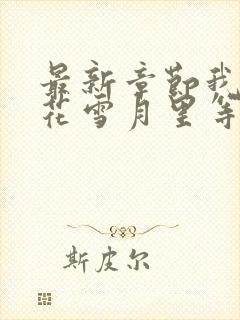 最新章节我
花雪月里等
斯皮尔